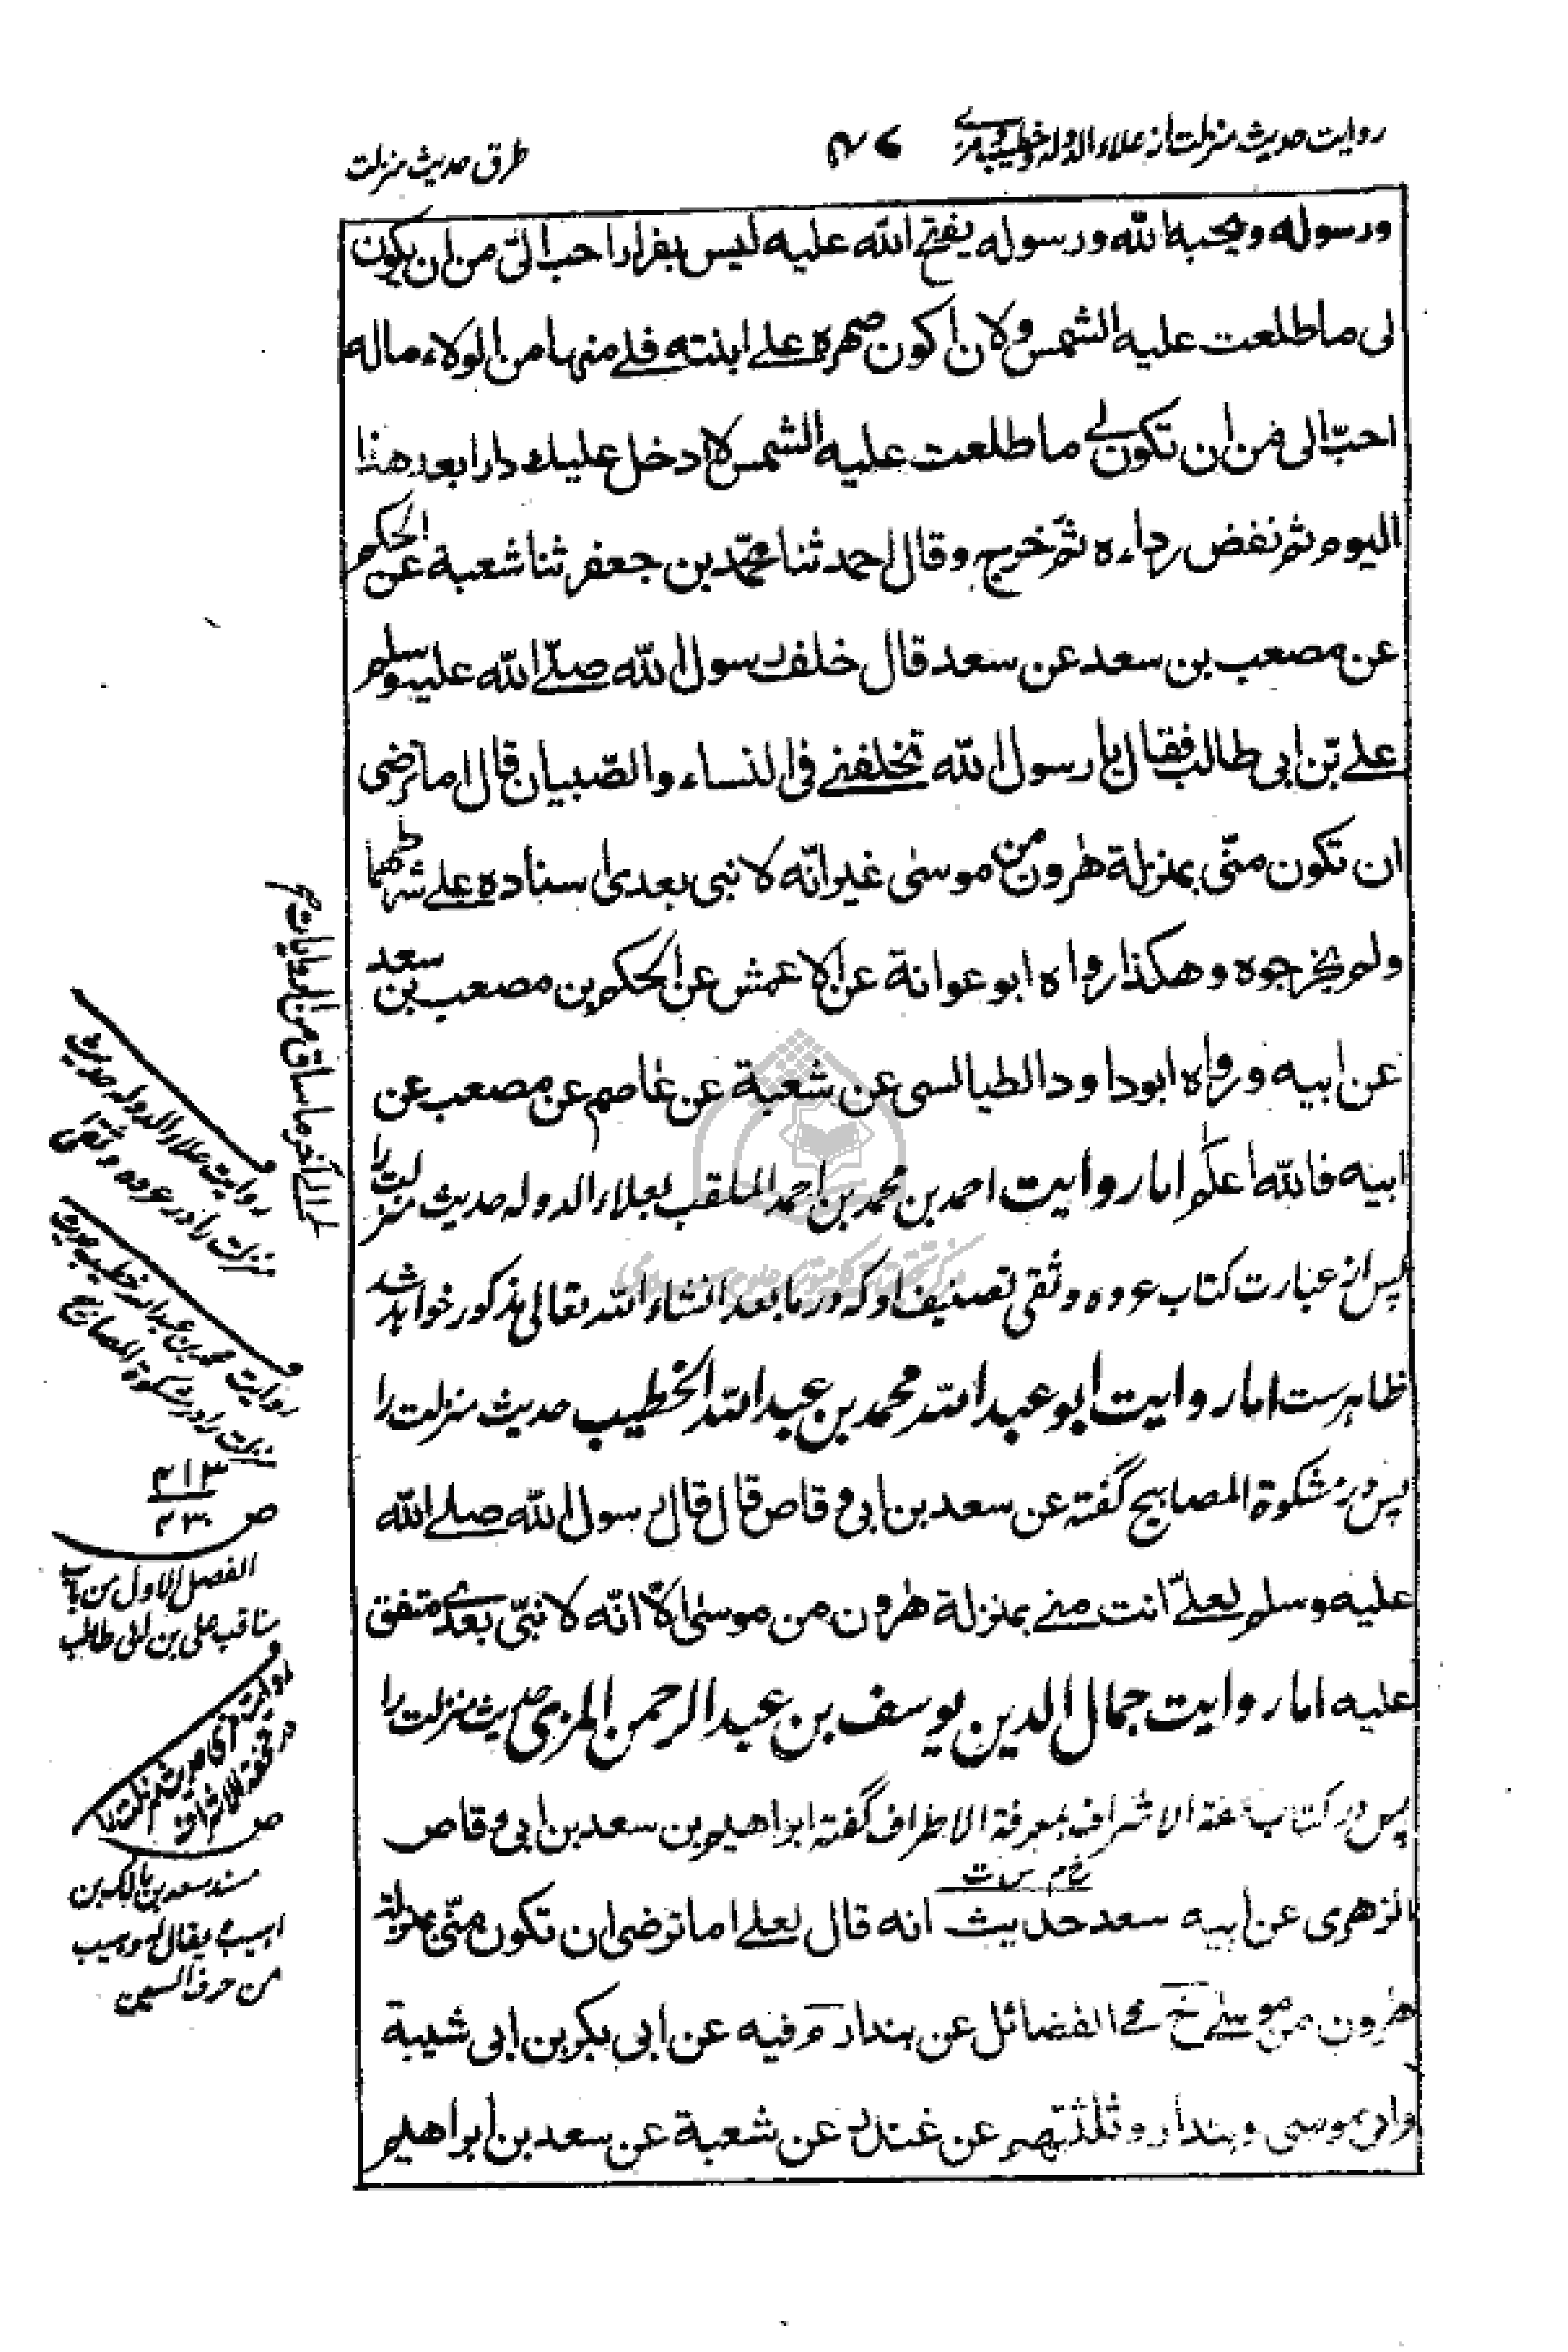 روایت حدیث منزلت از علاء الدوله و خطیب و مزی
۴۷
طرق حدیث منزلت
ورسوله ويحبه الله ورسوله يفتح الله عليه ليس بفرار احب الىّ من ان يكون
لى ما طلعت عليه الشمس ولان اكون صهره على ابنته فلے منها من الولاء ماله
احبّ الى من ان تكون لے ما طلعت عليه الشمس لا دخل عليك دارا بعد هذا
اليوم ثم نفض رداءه ثمّ خرج وقال احمد ثنا محمّد بن جعفر ثنا شعبة عن الحكم
عن مصعب بن سعد عن سعد قال خلف رسول الله صلّے الله عليه وسلم
علے بن ابى طالب فقال يا رسول الله تخلفنے فى النساء والصّبيان قال اما ترضى
ان تكون منّى بمنزلة هٰرون من موسىٰ غير انّه لا نبى بعدى اسناده علے شرطهما
ولم يخرجوه وهكذا رواه ابو عوانة عن الاعمش عن الحكم بن مصعب بن سعد
عن ابيه ورواه ابو داود الطيالسى عن شعبة عن عاصم عن مصعب عن
ابيه فالله اعلم اما روایت احمد بن محمد بن احمد الملقب بعلاء الدوله حدیث منزلت را
پس از عبارت کتاب عروه وثقی تصنیف او که در ما بعد انشاء الله تعالی مذکور خواهد شد
ظاهرست اما روایت ابو عبد الله محمد بن عبد الله الخطیب حدیث منزلت را
پس در مشکوة المصابیح گفته عن سعد بن ابى وقاص قال قال رسول الله صلے الله
عليه وسلم لعلےّ انت منے بمنزلة هٰرون من موسىٰ الاّ انّه لا نبّى بعدے متفق
عليه اما روایت جمال الدین یوسف بن عبد الرحمن المزی حدیث منزلت را
پس در کتاب تحفة الاشراف بمعرفة الاطراف گفته ابراهيم بن سعد بن ابى وقاص
خ م س ت
الزهرى عن ابيه سعد حديث انه قال لعلے اما ترضى ان تكون منّى بمنزلة
هٰرون من موسےٰ خ فے الفضائل عن بندار م فيه عن ابى بكر بن ابى شيبة
وابى موسى وبندار وثلثتهم عن غندر عن شعبة عن سعد بن ابراهيم
الے آخر ما ساق من الروايات
روایت علاء الدوله حدیث
منزلت را در عروه وثقی
روایت محمد بن عبد الله خطیب حدیث
منزلت را در مشکوة المصابیح
ص
الفصل الاول من باب
مناقب على بن ابى طالب
روایت مزی حدیث منزلت را
در تحفة الاشراف
ص
مسند سعد بن مالك بن
اهيب ويقال وهيب
من حرف السين